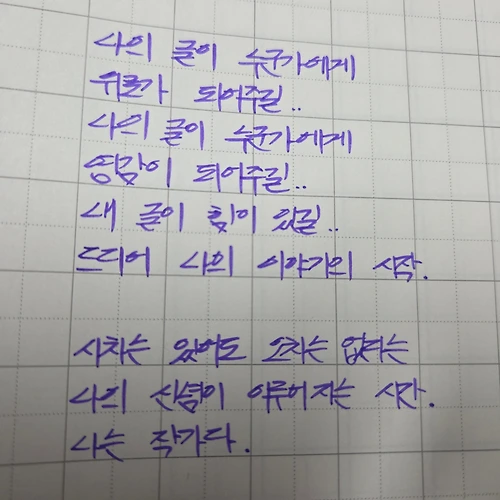 나의 글이 누군가에게
위로가 되어주길..
나의 글이 누군가에게
영감이 되어주길..
내 글이 힘이 있길..
드디어 나의 이야기의 시작.
시차는 있어도 오차는 없다는
나의 신념이 이루어지는 시간.
나는 작가다.